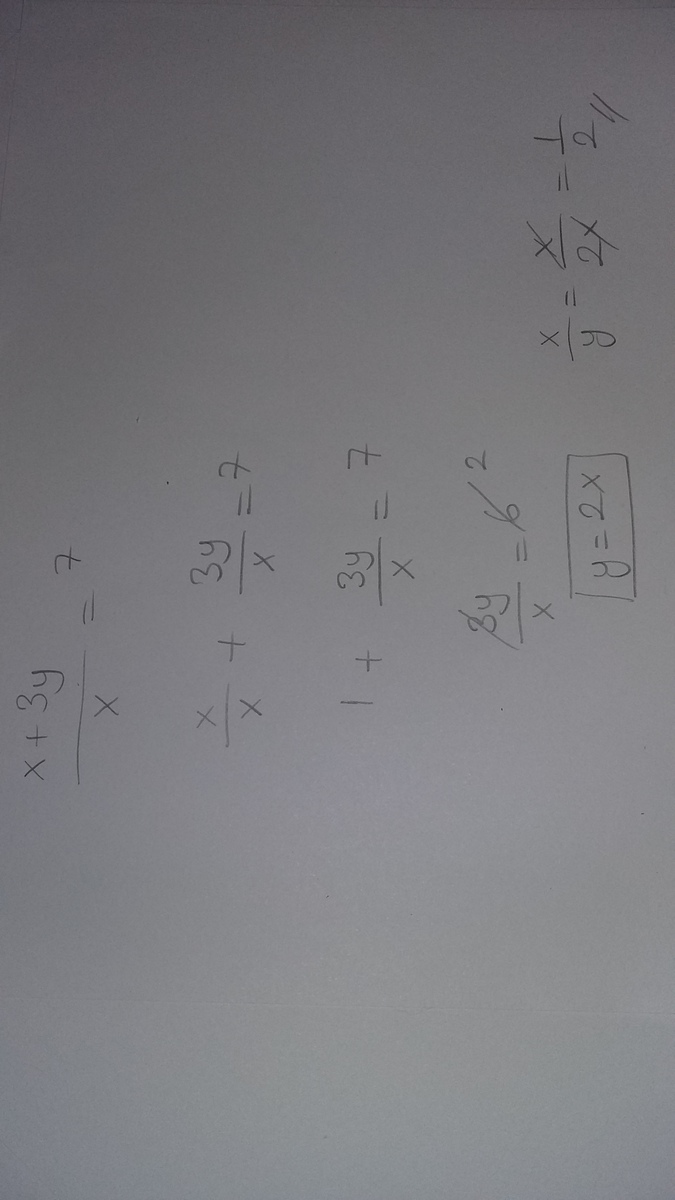 x + 3y / x = 7
x/x + 3y/x = 7
1 + 3y/x = 7
3y/x = 6 2
y = 2x
x/y = x/2x = 1/2 //